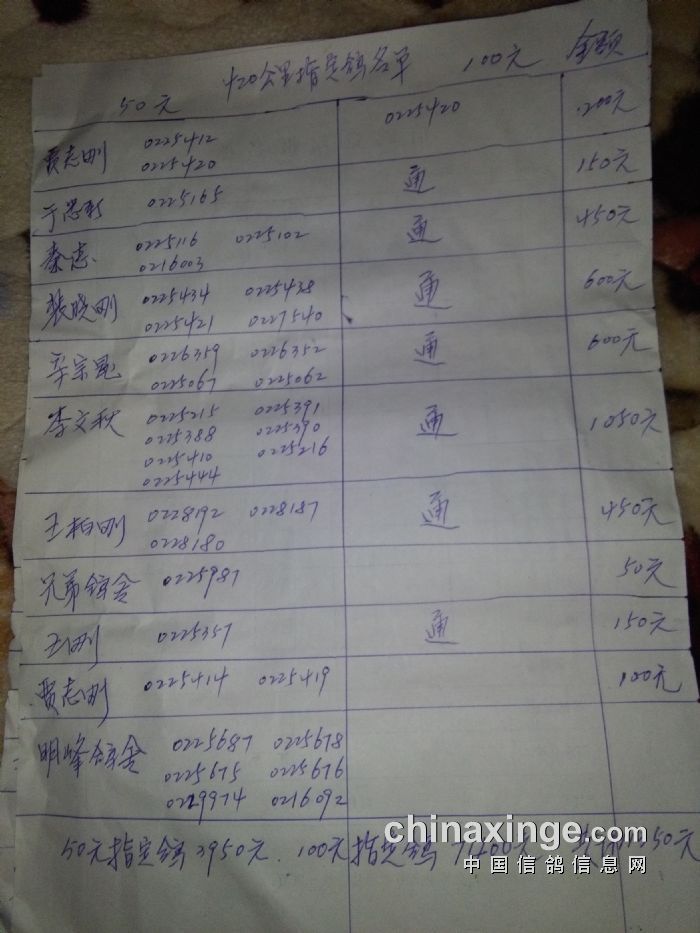 420公里指定鸽名单 100元 金额
50元
贾志刚 0225412 0225420 200元
0225420
于思新 0225165 通 150元
秦志 0225116 0225102 通 450元
0216003
张晓刚 0225434 0225438 通 600元
0225421 0227540
辛宗 0226359 0226352 通 600元
0225067 0225062
李文秋 0225215 0225391 通 1050元
0225388 0225390
0225410 0225216
0225444
王柏刚 0228192 0228187 通 450元
0228180
兄弟鸽舍 0225987 50元
王刚 0225357 通 150元
贾志刚 0225414 0225419 100元
明峰鸽舍 0225687 0225678
0225675 0225676
0229974 0216092
50元指定鸽3950元. 100元指定鸽
chinaxinge.com
中国信鸽信息网